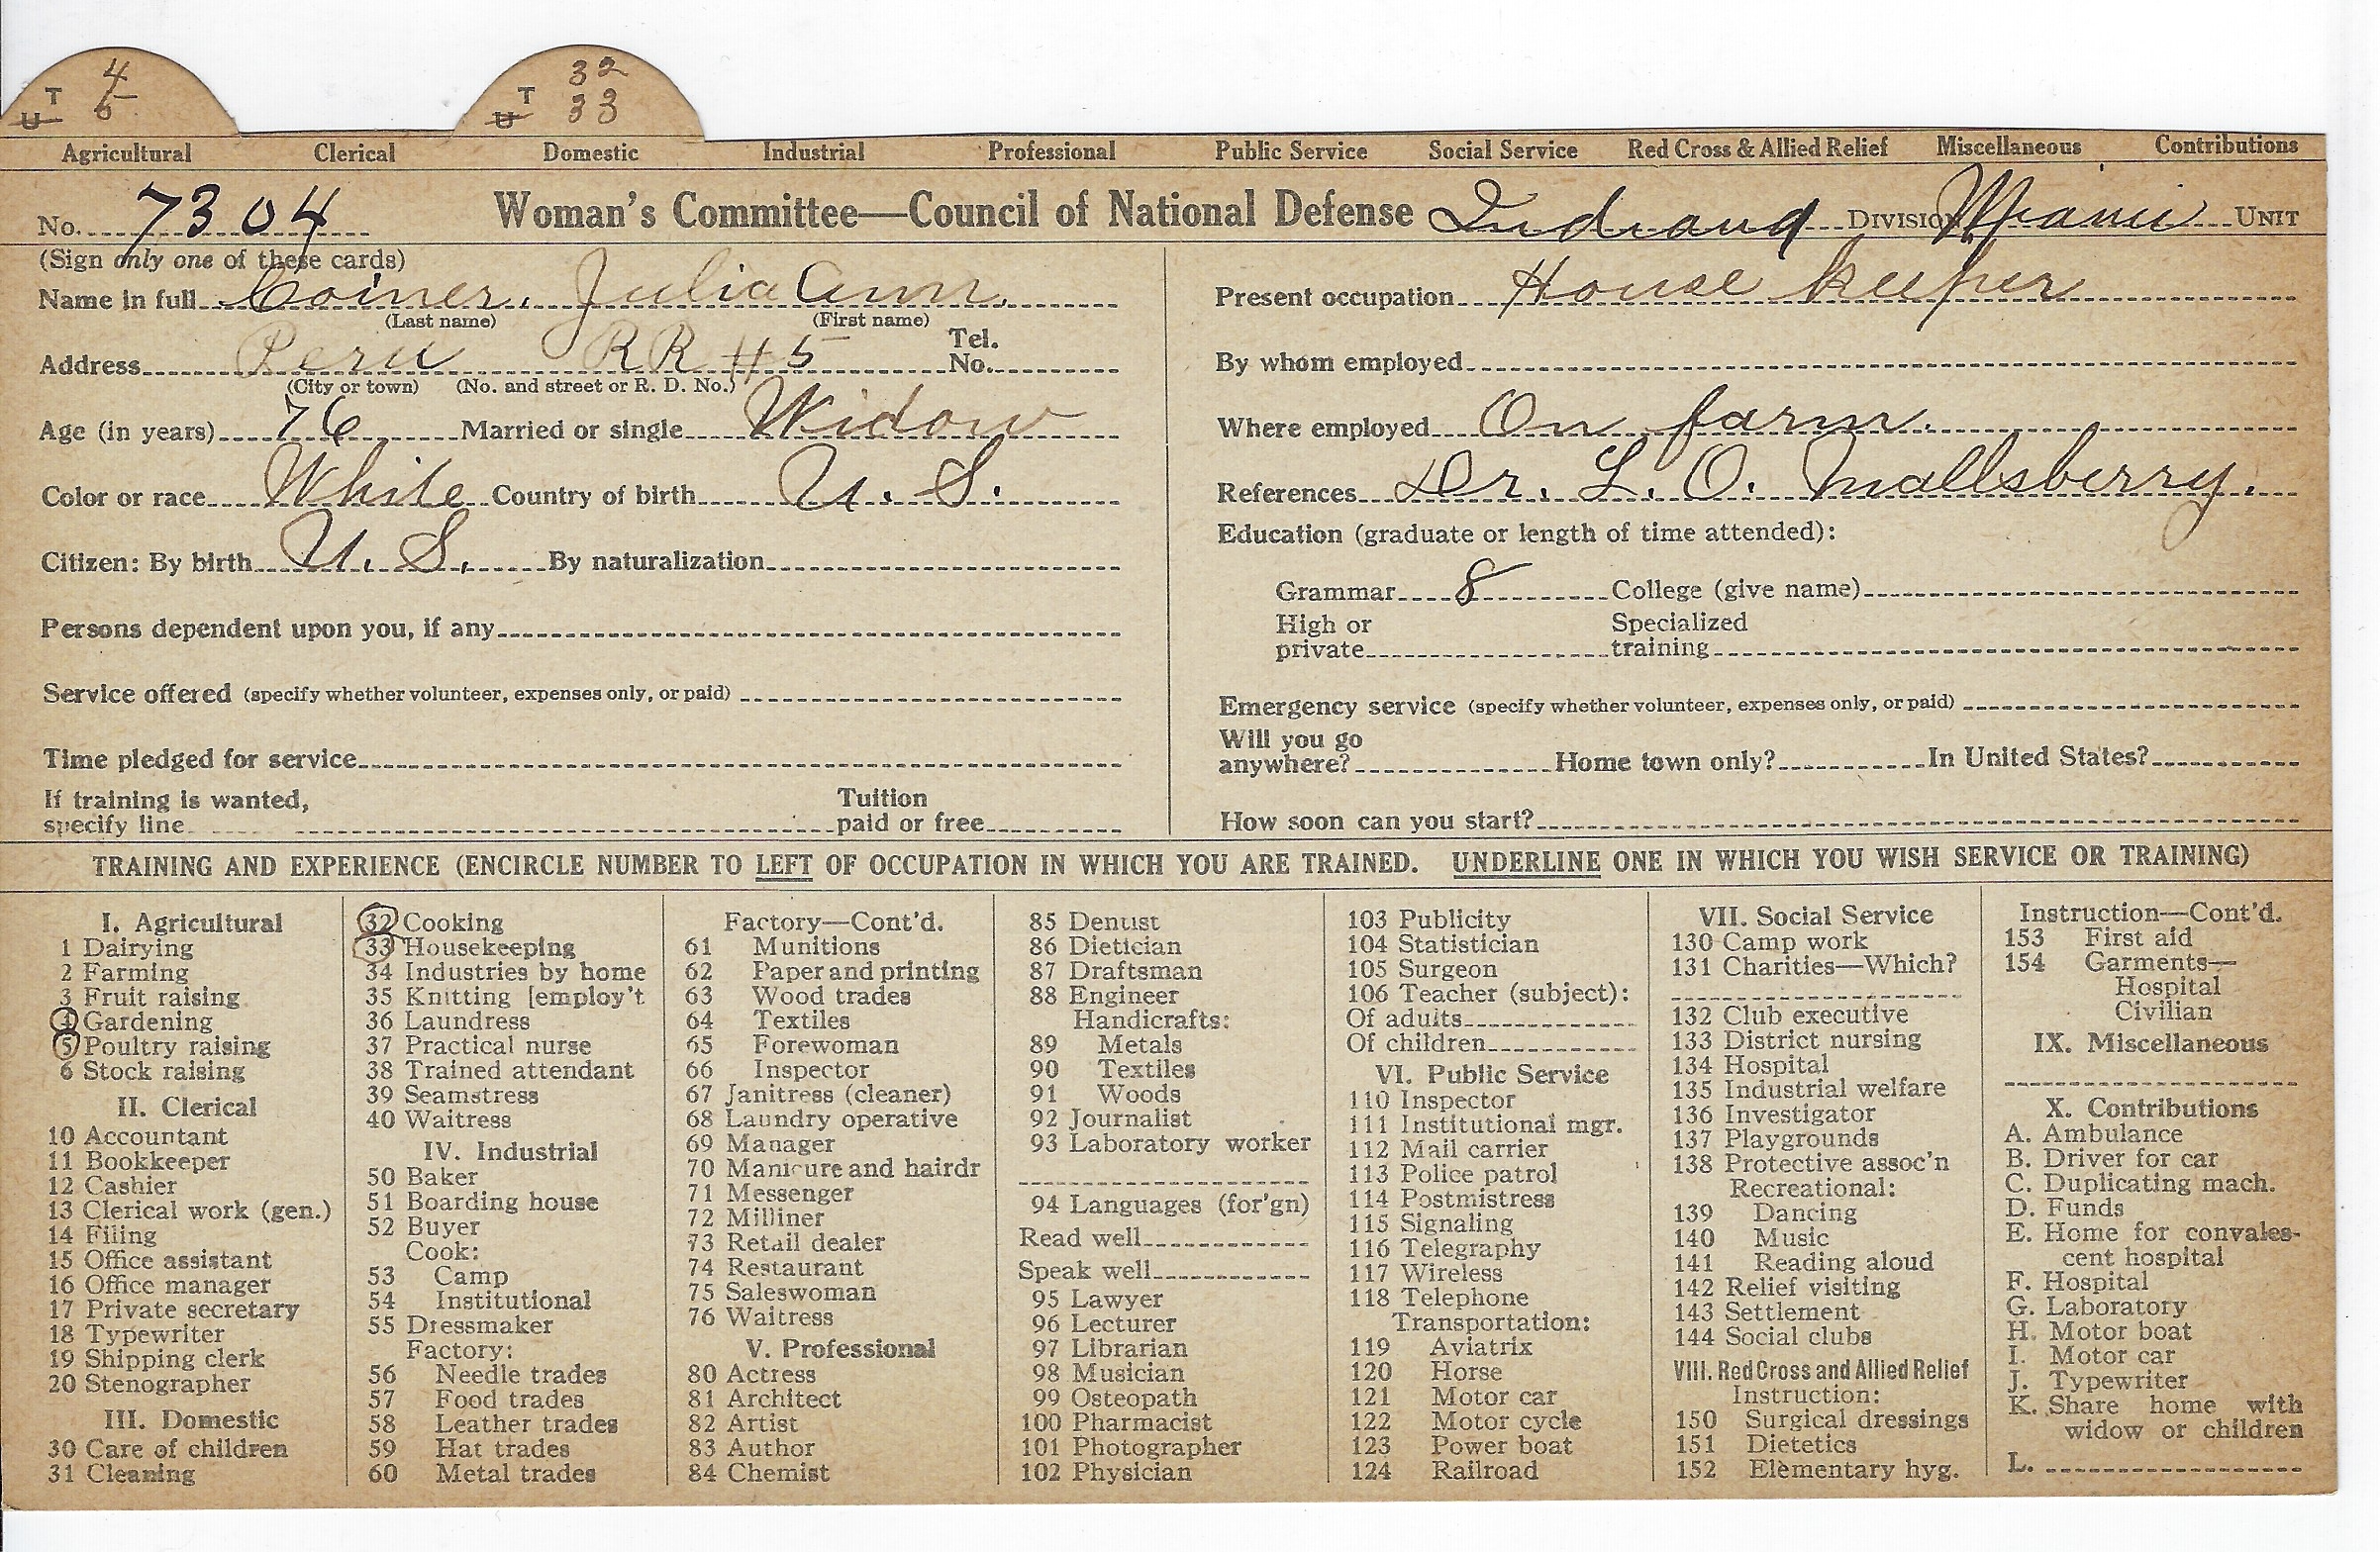 4 32
T 5 T 33
U U
Agricultural Clerical Domestic Industrial Professional Public Service Social Service Red Cross & Allied Relief Miscellaneous Contributions
No. 7304 Woman's Committee—Council of National Defense Indiana DIVISION Miami UNIT
(Sign only one of these cards)
Name in full Coiner, Julia Ann.
(Last name) (First name)
Address Peru RR #5 Tel. No.
(City or town) (No. and street or R. D. No.)
Age (in years) 76 Married or single Widow
Color or race White Country of birth U. S.
Citizen: By birth U. S. By naturalization
Persons dependent upon you, if any
Service offered (specify whether volunteer, expenses only, or paid)
Time pledged for service
If training is wanted,
specify line
Tuition
paid or free
Present occupation House keeper
By whom employed
Where employed On farm.
References Dr. L. O. Mallsberry.
Education (graduate or length of time attended):
Grammar 8 College (give name)
High or
private
Specialized
training
Emergency service (specify whether volunteer, expenses only, or paid)
Will you go
anywhere? Home town only? In United States?
How soon can you start?
TRAINING AND EXPERIENCE (ENCIRCLE NUMBER TO LEFT OF OCCUPATION IN WHICH YOU ARE TRAINED. UNDERLINE ONE IN WHICH YOU WISH SERVICE OR TRAINING)
I. Agricultural
1 Dairying
2 Farming
3 Fruit raising
4 Gardening
5 Poultry raising
6 Stock raising
II. Clerical
10 Accountant
11 Bookkeeper
12 Cashier
13 Clerical work (gen.)
14 Filing
15 Office assistant
16 Office manager
17 Private secretary
18 Typewriter
19 Shipping clerk
20 Stenographer
III. Domestic
30 Care of children
31 Cleaning
32 Cooking
33 Housekeeping
34 Industries by home
35 Knitting [employ't
36 Laundress
37 Practical nurse
38 Trained attendant
39 Seamstress
40 Waitress
IV. Industrial
50 Baker
51 Boarding house
52 Buyer
Cook:
53 Camp
54 Institutional
55 Dressmaker
Factory:
56 Needle trades
57 Food trades
58 Leather trades
59 Hat trades
60 Metal trades
Factory—Cont'd.
61 Munitions
62 Paper and printing
63 Wood trades
64 Textiles
65 Forewoman
66 Inspector
67 Janitress (cleaner)
68 Laundry operative
69 Manager
70 Manicure and hairdr
71 Messenger
72 Milliner
73 Retail dealer
74 Restaurant
75 Saleswoman
76 Waitress
V. Professional
80 Actress
81 Architect
82 Artist
83 Author
84 Chemist
85 Dentist
86 Dietician
87 Draftsman
88 Engineer
Handicrafts:
89 Metals
90 Textiles
91 Woods
92 Journalist
93 Laboratory worker
94 Languages (for'gn)
Read well
Speak well
95 Lawyer
96 Lecturer
97 Librarian
98 Musician
99 Osteopath
100 Pharmacist
101 Photographer
102 Physician
103 Publicity
104 Statistician
105 Surgeon
106 Teacher (subject):
Of adults
Of children
VI. Public Service
110 Inspector
111 Institutional mgr.
112 Mail carrier
113 Police patrol
114 Postmistress
115 Signaling
116 Telegraphy
117 Wireless
118 Telephone
Transportation:
119 Aviatrix
120 Horse
121 Motor car
122 Motor cycle
123 Power boat
124 Railroad
VII. Social Service
130 Camp work
131 Charities—Which?
132 Club executive
133 District nursing
134 Hospital
135 Industrial welfare
136 Investigator
137 Playgrounds
138 Protective assoc'n
Recreational:
139 Dancing
140 Music
141 Reading aloud
142 Relief visiting
143 Settlement
144 Social clubs
VIII. Red Cross and Allied Relief
Instruction:
150 Surgical dressings
151 Dietetics
152 Elementary hyg.
Instruction—Cont'd.
153 First aid
154 Garments—
Hospital
Civilian
IX. Miscellaneous
X. Contributions
A. Ambulance
B. Driver for car
C. Duplicating mach.
D. Funds
E. Home for convales-
cent hospital
F. Hospital
G. Laboratory
H. Motor boat
I. Motor car
J. Typewriter
K. Share home with
widow or children
L.